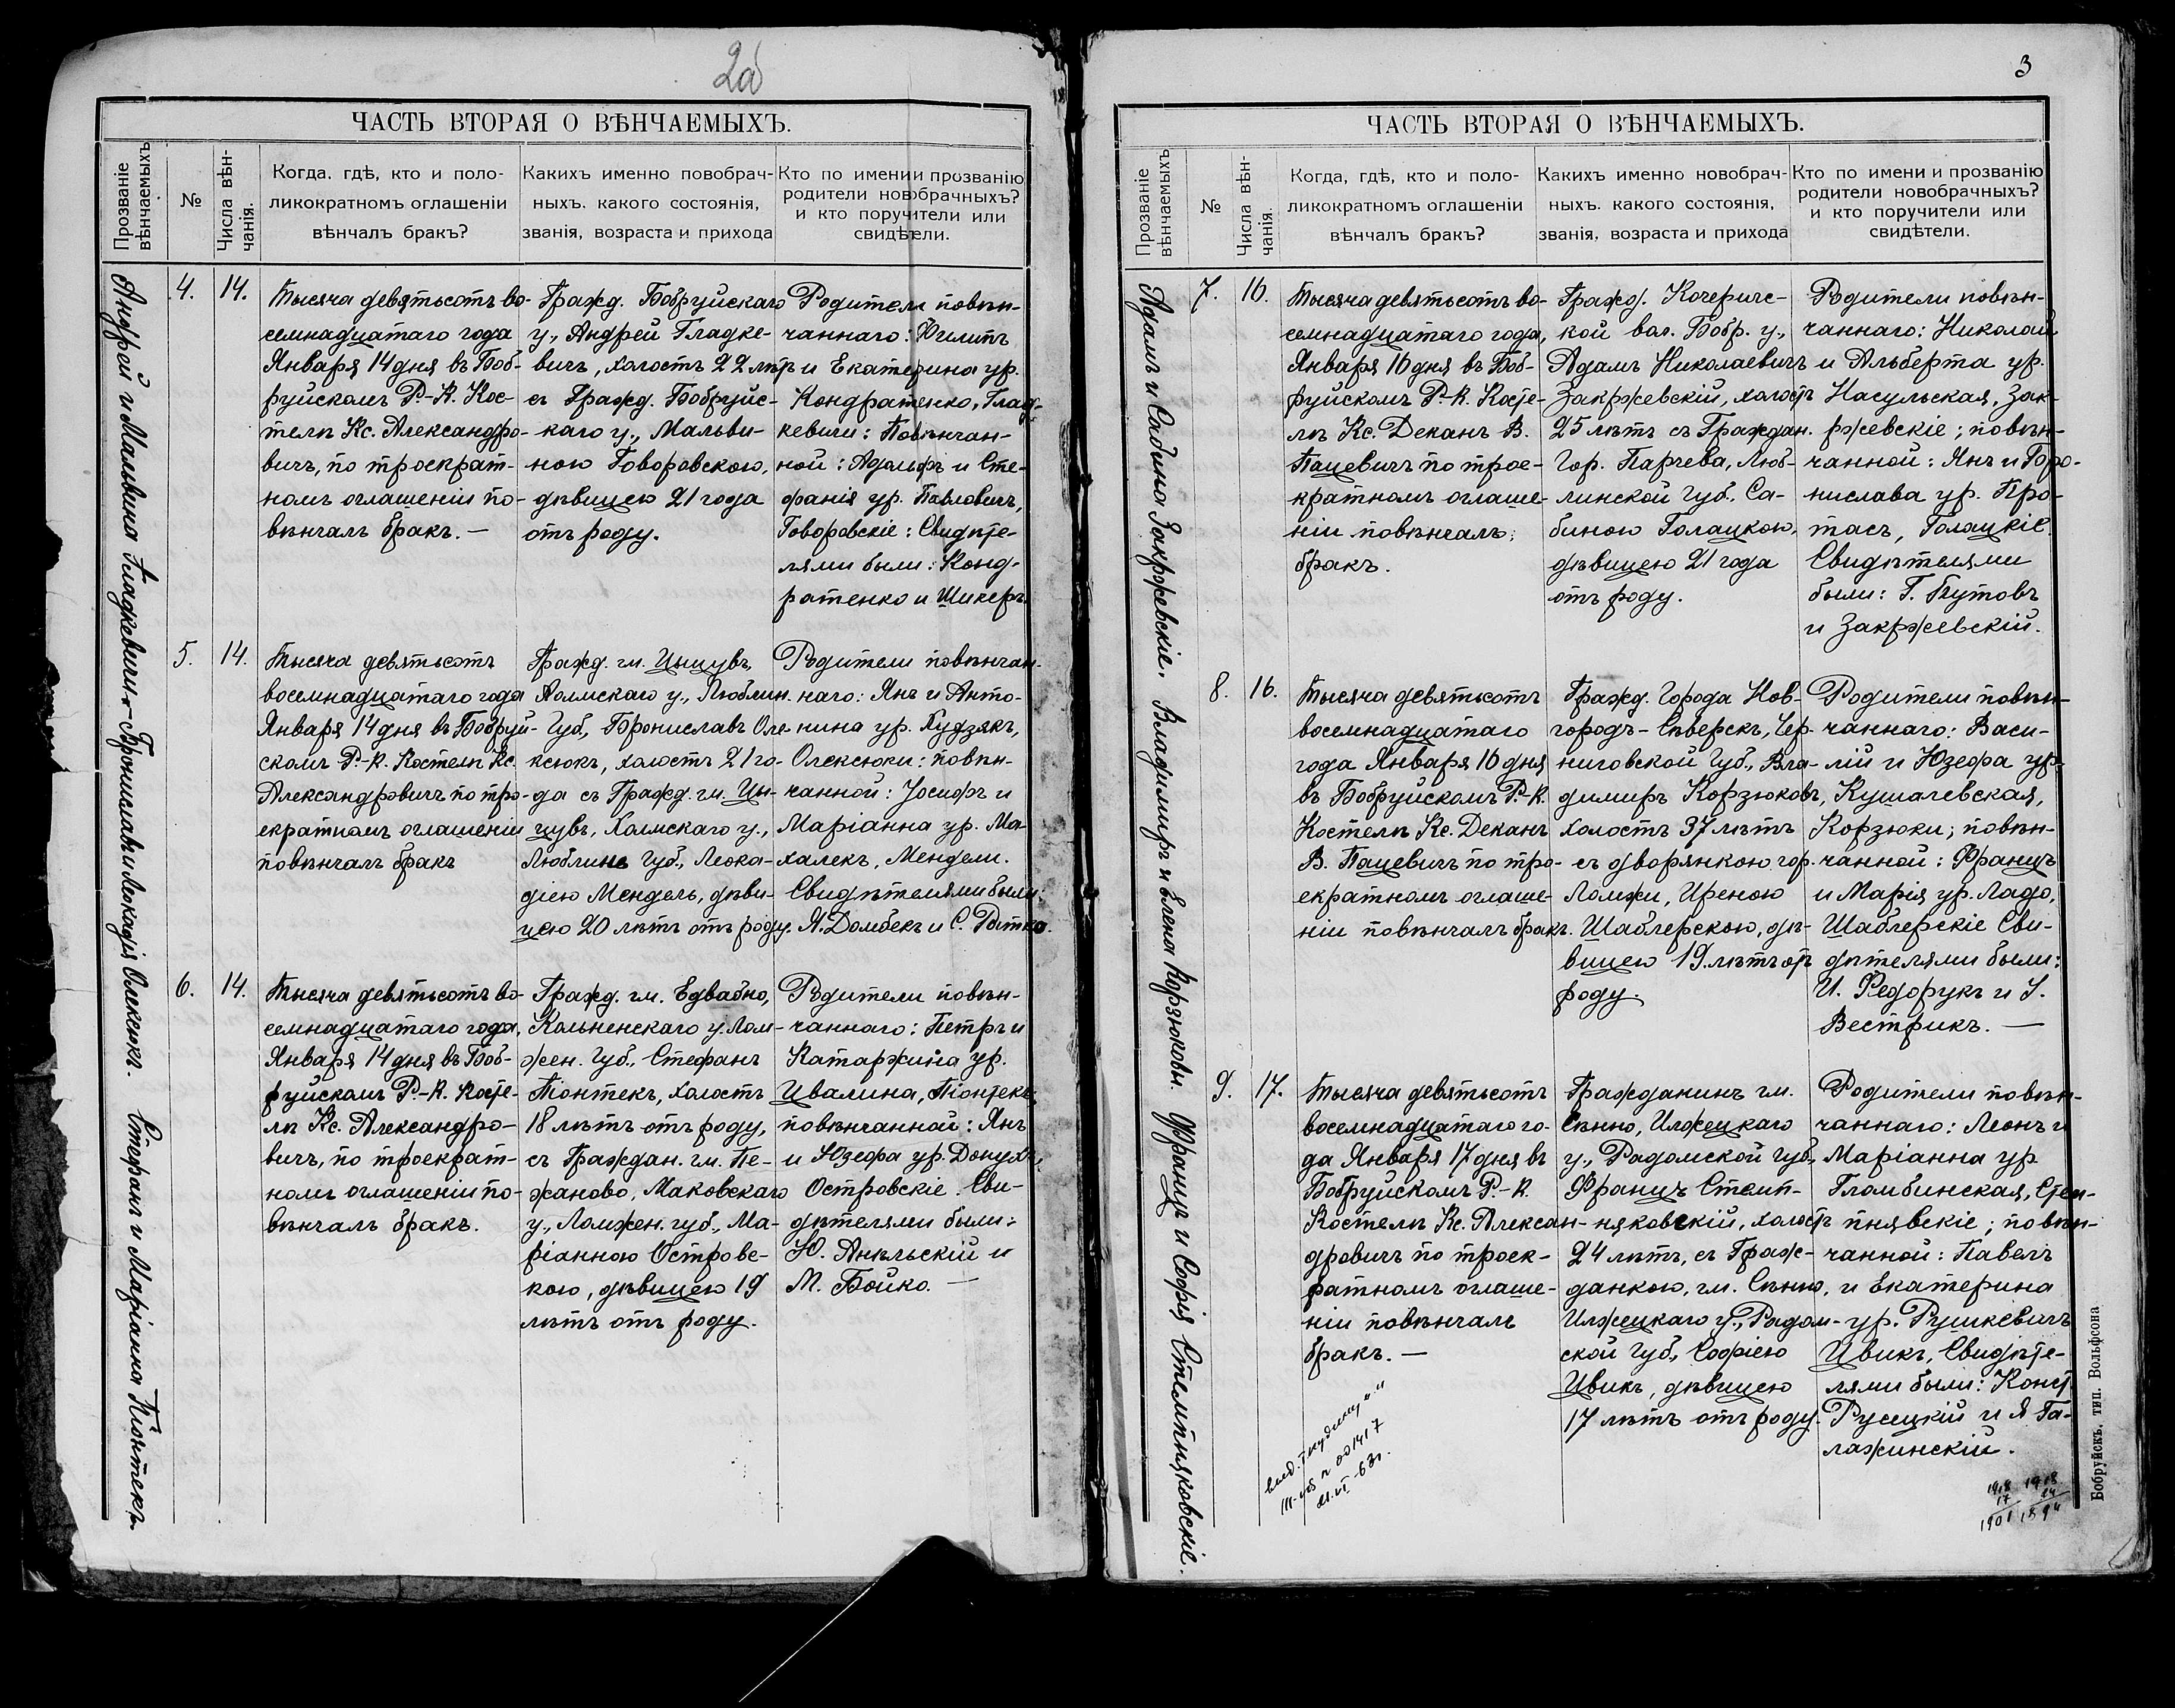 2об
ЧАСТЬ ВТОРАЯ О ВѢНЧАЕМЫХЪ.
Прозваніе вѣнчаемыхъ
№
Числа вѣн-
чанія.
Когда, гдѣ, кто и поло-
ликократномъ оглашеніи
вѣнчалъ бракъ?
Какихъ именно новобрач-
ныхъ. какого состоянія,
званія, возраста и прихода
Кто по имении прозванію
родители новобрачныхъ?
и кто поручители или
свидѣтели.
Андрей и Мальвина Гладкевичи
4.
14.
Тысяча девятьсотъ во-
семнадцатаго года
Января 14 дня въ Боб-
руйскомъ Р.-К. Кос-
телѣ Кс. Александро-
вичъ, по троекрат-
номъ оглашеніи по-
вѣнчалъ бракъ. —
Гражд. Бобруйскаго
у., Андрей Гладке-
вичъ, холостъ 22 лѣтъ
съ Гражд. Бобруйс-
каго у., Мальви-
ною Говоровскою,
дѣвицею 21 года
отъ роду.
Родители повѣн-
чаннаго: Филипъ
и Екатерина ур.
Кондратенко, Глад-
кевичи: Повѣнчан-
ной: Адольфъ и Сте-
фанія ур. Павловичъ,
Говоровскіе: Свидѣте-
лями были: Конд-
ратенко и Шикеръ.
Брониславъ и Леокадія Олексюкъ.
5.
14.
Тысяча девятьсотъ
восемнадцатаго года
Января 14 дня въ Бобруй-
скомъ Р.-К. Костелѣ Кс.
Александровичъ по тро-
екратномъ оглашеніи
повѣнчалъ бракъ
Гражд. гм. Цыцувъ,
Холмскаго у., Люблин.
Губ., Брониславъ Оле-
ксюкъ, холостъ 21 го-
да съ Гражд. гм. Цы-
цувъ, Холмскаго у.,
Люблинъ Губ., Леока-
діею Мендель, дѣви-
цею 20 лѣтъ отъ роду.
Родители повѣнчан-
наго: Янъ и Анто-
нина ур. Кудзякъ,
Олексюки: повѣн-
чанной: Іосифъ и
Маріанна ур. Ма-
халекъ, Мендели.
Свидѣтелями были:
А. Домбекъ и С. Рытко.
Стефанъ и Маріанна Піонтекъ.
6.
14.
Тысяча девятьсотъ во-
семнадцатаго года,
Января 14 дня въ Боб-
руйскомъ Р.-К. Косте-
лѣ Кс. Александро-
вичъ, по троекрат-
номъ оглашеніи по-
вѣнчалъ бракъ.
Гражд. гм. Едвабно,
Кольненскаго у. Лом-
жен. Губ., Стефанъ
Піонтекъ, холостъ
18 лѣтъ отъ роду,
съ Граждан. гм. Пе-
жаново, Маковскаго
у., Ломжен. губ., Ма-
ріанною Островс-
кою, дѣвицею 19
лѣтъ отъ роду.
Родители повѣн-
чаннаго: Петръ и
Катаржина ур.
Цвалина, Піонтекъ,
повѣнчанной: Янъ
и Юзефа ур.
Островскіе. Сви-
дѣтелями были:
Ю. Анѣльскій и
М. Бойко. —
3
ЧАСТЬ ВТОРАЯ О ВѢНЧАЕМЫХЪ.
Прозваніе вѣнчаемыхъ
№
Числа вѣн-
чанія.
Когда, гдѣ, кто и поло-
ликократномъ оглашеніи
вѣнчалъ бракъ?
Какихъ именно новобрач-
ныхъ. какого состоянія,
званія, возраста и прихода
Кто по имени и прозванію
родители новобрачныхъ?
и кто поручители или
свидѣтели.
Адамъ и Сабина Закржевскіе.
7.
16.
Тысяча девятьсотъ во-
семнадцатаго года,
Января 16 дня въ Боб-
руйскомъ Р.-К. Косте-
лѣ Кс. Деканъ В.
Пацевичъ по трое-
кратномъ оглаше-
ніи повѣнчалъ
бракъ.
Гражд. Кочерич-
кой вол. Бобр. у.,
Адамъ Николаевичъ
Закржевскій, холостъ
25 лѣтъ съ Граждан.
Гор. Парчева, Люб-
линской Губ., Са-
биною Голацкою,
дѣвицею 21 года
отъ роду.
Родители повѣн-
чаннаго: Николай
и Альберта ур.
Насульская, Зак-
ржевскіе; повѣн-
чанной: Янъ и
нислава ур. Про-
тасъ, Голацкіе
Свидѣтелями
были: Г. Бутовъ
и Закржевскій.
Владимиръ и Елена Корзюковы.
8.
16.
Тысяча девятьсотъ
восемнадцатаго
года Января 16 дня
въ Бобруйскомъ Р.-К.
Костелѣ Кс. Деканъ
В. Пацевичъ по тро-
екратномъ оглаше-
ніи повѣнчалъ бракъ.
Гражд. Города Нов-
городъ-Сѣверскъ, Чер-
ниговской Губ., Вла-
димиръ Корзюковъ,
холостъ 37 лѣтъ
съ дворянкою гор.
Ломжи, Иреною
Шаблерскою, дѣ-
вицею 19 лѣтъ отъ
роду.
Родители повѣн-
чаннаго: Васи-
лій и Юзефа ур.
Кушалевская,
Корзюки; повѣн-
чанной: Францъ
и Марія ур. Ладо,
Шаблерскіе Сви-
дѣтелями были:
И. Федорукъ и І.
Вестрикъ. —
Францъ и Софія Стемпняковскіе.
9.
17.
Тысяча девятьсотъ
восемнадцатаго го-
да Января 17 дня въ
Бобруйскомъ Р.-К.
Костелѣ Кс. Алексан-
дровичъ по троек-
ратномъ оглаше-
ніи повѣнчалъ
бракъ. —
Гражданинъ гм.
Сѣнно, Илжецкаго
у., Радомской Губ.,
Францъ Стемп-
няковскій, холостъ
24 лѣтъ, съ Граж-
данкою, гм. Сѣнно,
Илжецкаго у., Радом-
ской Губ., Софіею
Цвикъ, дѣвицею
17 лѣтъ отъ роду.
Родители повѣн-
чаннаго: Леонъ и
Маріанна ур
Гломбинская, Стем-
пнявскіе; повѣн-
чанной: Павелъ
и Екатерина
ур. Рушкевичъ
Цвикъ, Свидѣте-
лями были: Конст.
Русецкій и Я Га-
лажинскій.
III-УБ № 001417
21.VI-63г.
1918 1918
17 24
1901 1894
Бобруйскъ, тип. Вольфсона